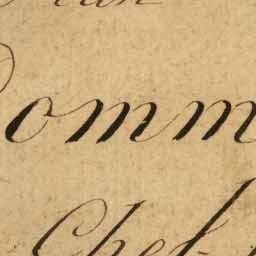 omm
Chef